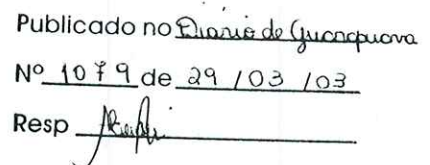 Publicado no Diario de Guarapuava
Nº 1079 de 29 / 03 / 03
Resp